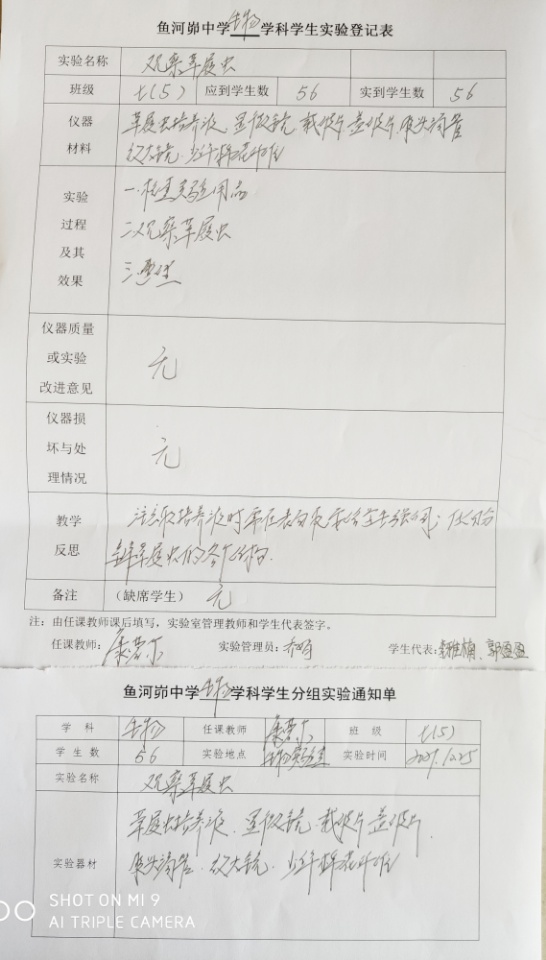 鱼河峁中学生物学科学生实验登记表
实验名称 观察草履虫
班级 七(5) 应到学生数 56 实到学生数 56
仪器材料 草履虫培养液 显微镜 载玻片 盖玻片 胶头滴管
放大镜 少许棉花纤维
实验过程及其效果 一.检查实验用品
二.观察草履虫
三.
仪器质量或实验改进意见 无
仪器损坏与处理情况 无
教学反思 注意取培养液时要在表面
草履虫的各个结构.
备注 (缺席学生) 无
注：由任课教师课后填写，实验室管理教师和学生代表签字。
任课教师： 实验管理员： 学生代表： 郭盈盈
鱼河峁中学生物学科学生分组实验通知单
学 科 生物 任课教师 班 级 七(5)
学 生 数 56 实验地点 生物实验室 实验时间
实验名称 观察草履虫
实验器材 草履虫培养液. 显微镜 载玻片 盖玻片.
胶头滴管. 放大镜. 少许棉花纤维
SHOT ON MI 9
AI TRIPLE CAMERA